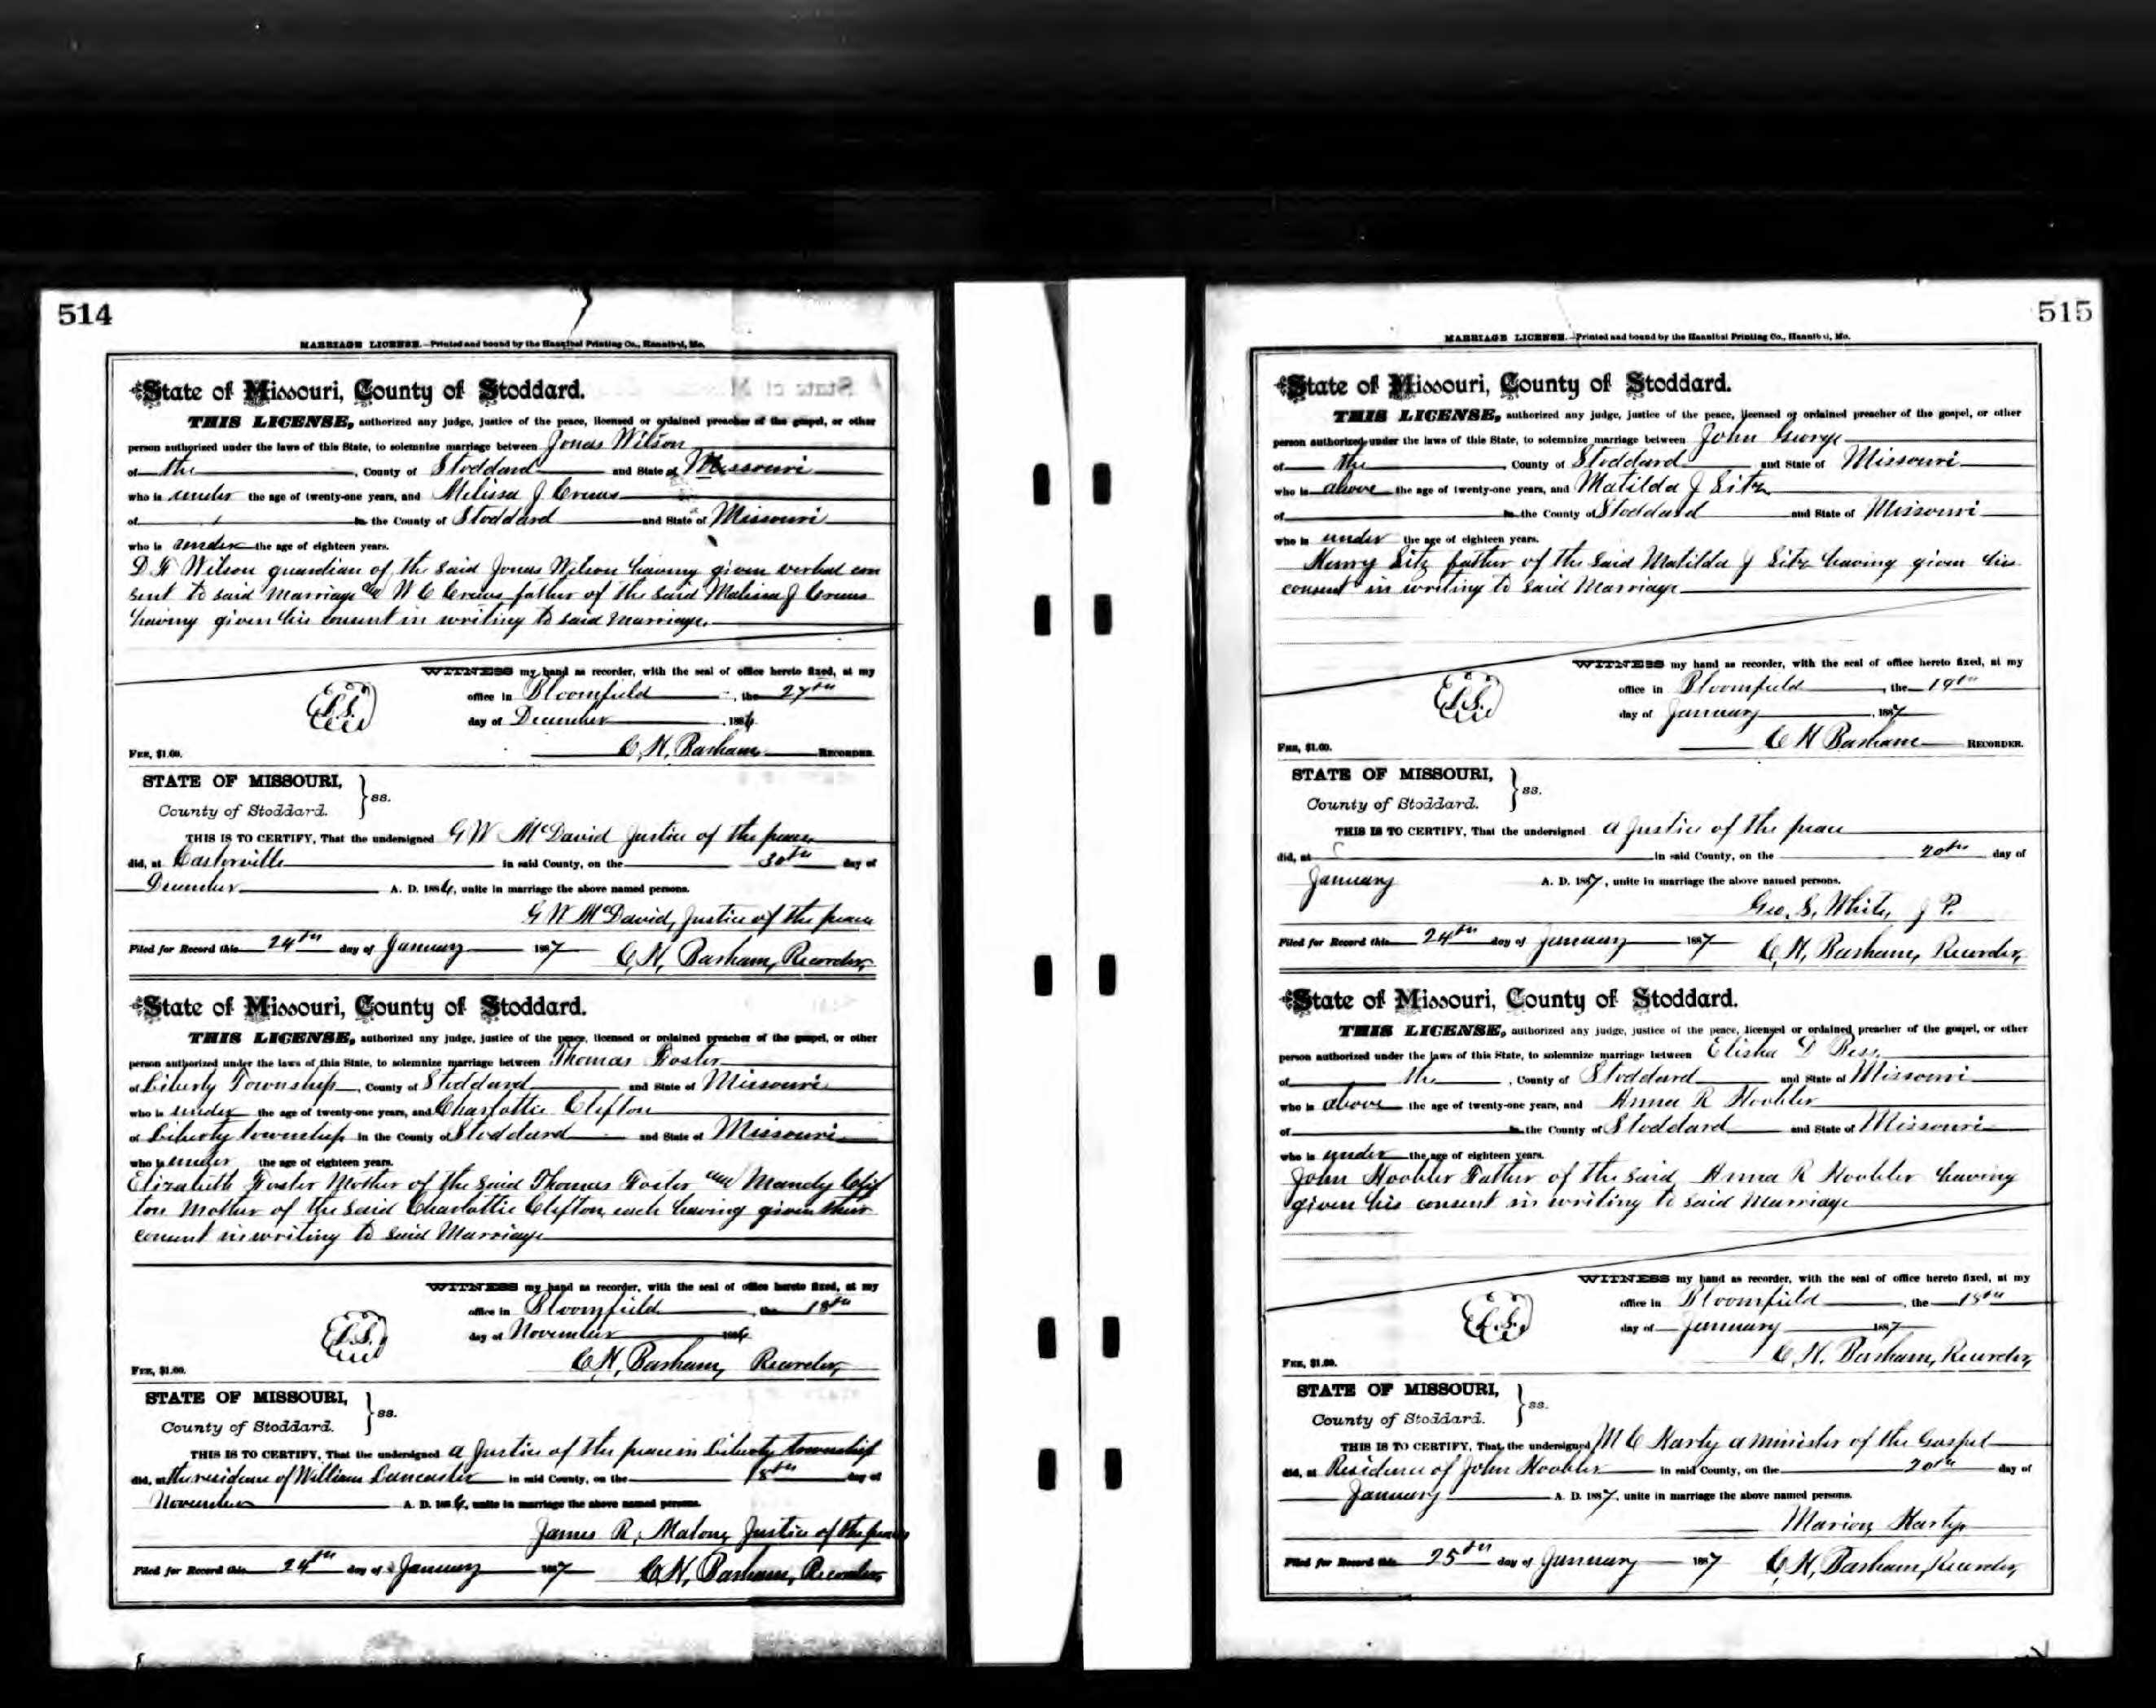 514
MARRIAGE LICENSE.—Printed and bound by the Hannibal Printing Co., Hannibal, Mo.
State of Missouri, County of Stoddard.
THIS LICENSE, authorized any judge, justice of the peace, licensed or ordained preacher of the gospel, or other
person authorized under the laws of this State, to solemnize marriage between Jonas Wilson
of the , County of Stoddard and State of Missouri
who is under the age of twenty-one years, and Melissa J Crews
of in the County of Stoddard and State of Missouri
who is under the age of eighteen years.
Wilson guardian of the said Jonas Wilson having given verbal con
sent to said Marriage and W C Crews father of the said Melissa J Crews
having given his consent in writing to said marriage.
WITNESS my hand as recorder, with the seal of office hereto fixed, at my
office in Bloomfield , the 27th
L.S.
day of December , 1886
FEE, $1.00.
C. H. Basham RECORDER.
STATE OF MISSOURI,
County of Stoddard. } ss.
THIS IS TO CERTIFY, That the undersigned G W McDavid Justice of the peace,
did, at Castorville in said County, on the 30th day of
December A. D. 1886, unite in marriage the above named persons.
G W McDavid, Justice of the peace
Filed for Record this 24th day of January 1887 C. H. Basham, Recorder,
State of Missouri, County of Stoddard.
THIS LICENSE, authorized any judge, justice of the peace, licensed or ordained preacher of the gospel, or other
person authorized under the laws of this State, to solemnize marriage between Thomas Foster
of Liberty Township , County of Stoddard and State of Missouri
who is under the age of twenty-one years, and Charlottie Clifton
of Liberty township in the County of Stoddard and State of Missouri
who is under the age of eighteen years.
Elizabeth Foster Mother of the said Thomas Foster and Mandy Clif
ton Mother of the said Charlottie Clifton, each having given their
consent in writing to said Marriage
WITNESS my hand as recorder, with the seal of office hereto fixed, at my
office in Bloomfield , the 18th
L.S.
day of November 1886
FEE, $1.00.
C. H. Basham, Recorder,
STATE OF MISSOURI,
County of Stoddard. } ss.
THIS IS TO CERTIFY, That the undersigned a Justice of the peace in Liberty township
did, at the residence of William Lancaster in said County, on the 18th day of
November A. D. 1886, unite in marriage the above named persons.
James R. Malone Justice of the peace
Filed for Record this 24th day of January 1887 C. H. Basham, Recorder,
515
MARRIAGE LICENSE.—Printed and bound by the Hannibal Printing Co., Hannibal, Mo.
State of Missouri, County of Stoddard.
THIS LICENSE, authorized any judge, justice of the peace, licensed or ordained preacher of the gospel, or other
person authorized under the laws of this State, to solemnize marriage between John George
of the , County of Stoddard and State of Missouri
who is above the age of twenty-one years, and Matilda J Sitz
of in the County of Stoddard and State of Missouri
who is under the age of eighteen years.
Henry Sitz father of the said Matilda J Sitz having given his
consent in writing to said Marriage
WITNESS my hand as recorder, with the seal of office hereto fixed, at my
office in Bloomfield , the 19th
L.S.
day of January , 1887
FEE, $1.00.
C H Basham RECORDER.
STATE OF MISSOURI,
County of Stoddard. } ss.
THIS IS TO CERTIFY, That the undersigned a Justice of the peace
did, at in said County, on the 20th day of
January A. D. 1887, unite in marriage the above named persons.
Geo. S. White, J P.
Filed for Record this 24th day of January 1887 C. H. Basham, Recorder,
State of Missouri, County of Stoddard.
THIS LICENSE, authorized any judge, justice of the peace, licensed or ordained preacher of the gospel, or other
person authorized under the laws of this State, to solemnize marriage between Elisha D Bess
of the , County of Stoddard and State of Missouri
who is above the age of twenty-one years, and Anna R Hoobler
of in the County of Stoddard and State of Missouri
who is under the age of eighteen years.
John Hoobler Father of the said Anna R Hoobler having
given his consent in writing to said Marriage
WITNESS my hand as recorder, with the seal of office hereto fixed, at my
office in Bloomfield , the 18th
L.S.
day of January 1887
FEE, $1.00.
C. H. Basham, Recorder,
STATE OF MISSOURI,
County of Stoddard. } ss.
THIS IS TO CERTIFY, That the undersigned M C Harty a minister of the Gospel
did, at Residence of John Hoobler in said County, on the 20th day of
January A. D. 1887, unite in marriage the above named persons.
Marion Harty
Filed for Record this 25th day of January 1887 C. H. Basham, Recorder,